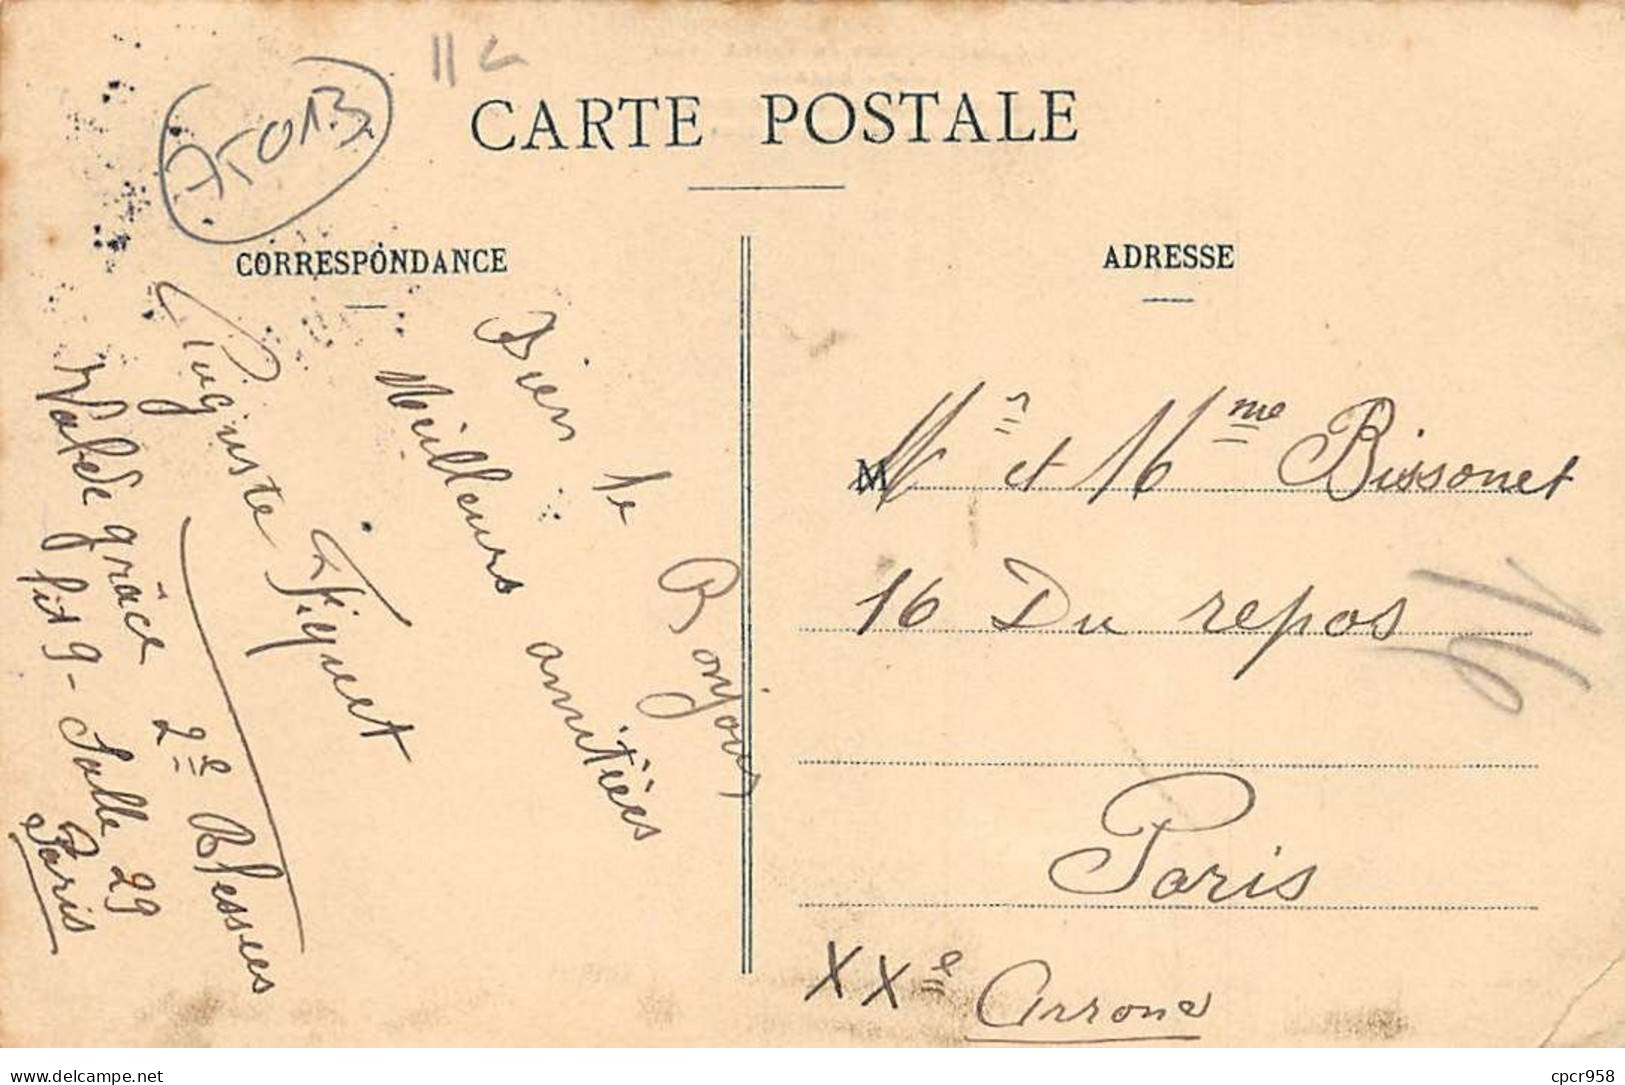 CARTE POSTALE
75013
CORRESPONDANCE
ADRESSE
Bien le Bonjour
Meilleurs amitiées
Auguste Figuet
Val de grâce 2e Blessées
lit 9 - Salle 29
Paris
M
Mr et Mme Bissonet
16 Du repos
Paris
XXe Arrond
Delcampe.net
cpcr958